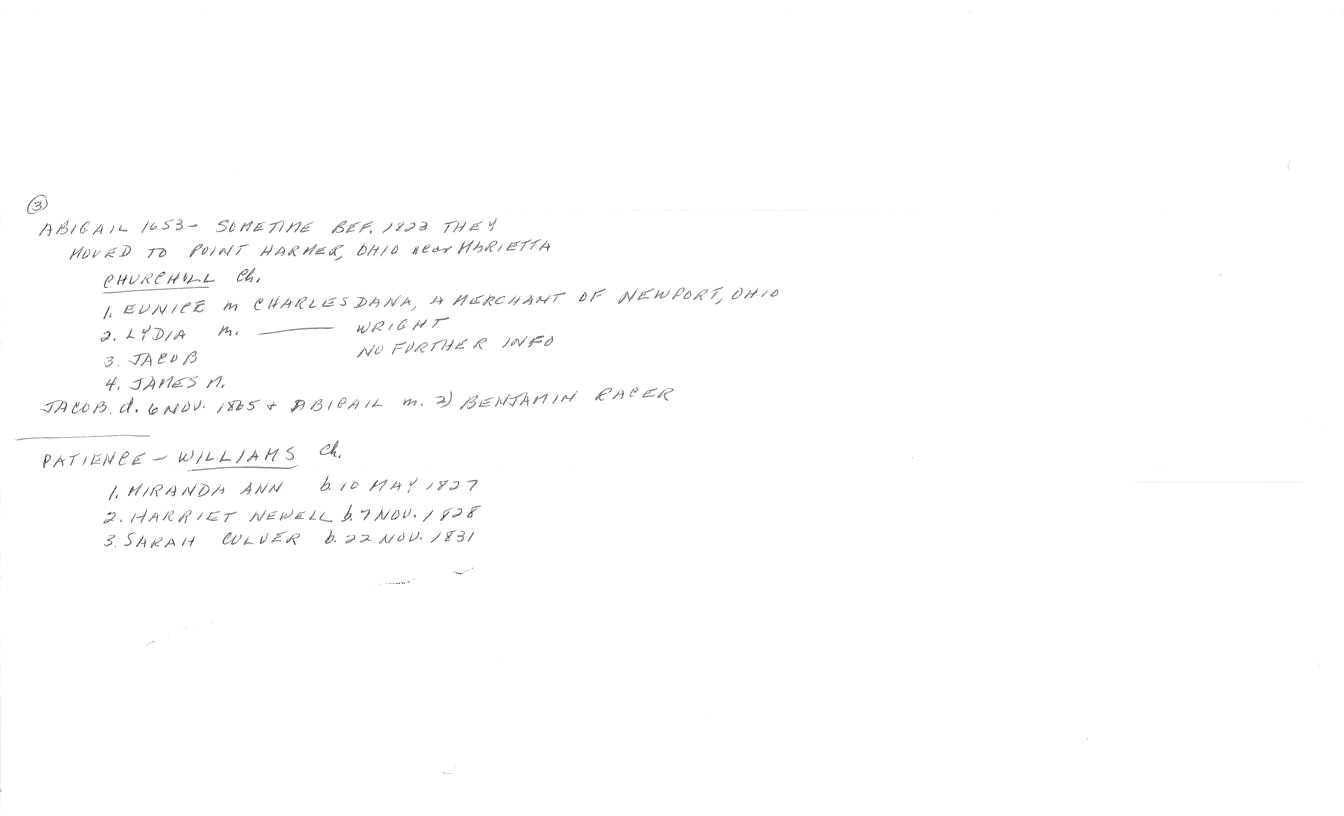 3
ABIGAIL 1653 - SOMETIME BEF. 1823 THEY
MOVED TO POINT HARMER, OHIO near MARIETTA
CHURCHILL Ch.
1. EUNICE m CHARLES DANA, A MERCHANT OF NEWPORT, OHIO
2. LYDIA m. —— WRIGHT
3. JACOB NO FURTHER INFO
4. JAMES M.
JACOB. d. 6 NOV. 1865 + ABIGAIL m. 2) BENJAMIN RACER
PATIENCE - WILLIAMS Ch.
1. MIRANDA ANN b. 10 MAY 1827
2. HARRIET NEWELL b. 7 NOV. 1828
3. SARAH CULVER b. 22 NOV. 1831